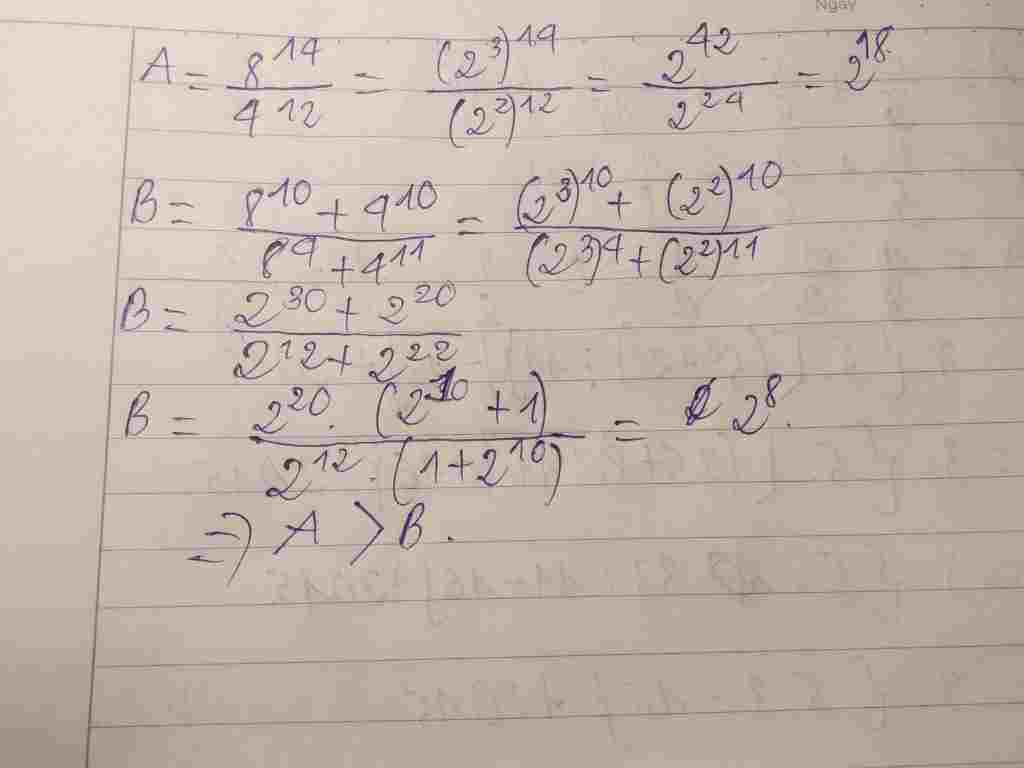 Ngày
A = 8^14 / 4^12 = (2^3)^14 / (2^2)^12 = 2^42 / 2^24 = 2^18.
B = (8^10 + 4^10) / (8^4 + 4^11) = ((2^3)^10 + (2^2)^10) / ((2^3)^4 + (2^2)^11)
B = (2^30 + 2^20) / (2^12 + 2^22)
B = 2^20 . (2^10 + 1) / 2^12 . (1 + 2^10) = 2^8.
=> A > B.